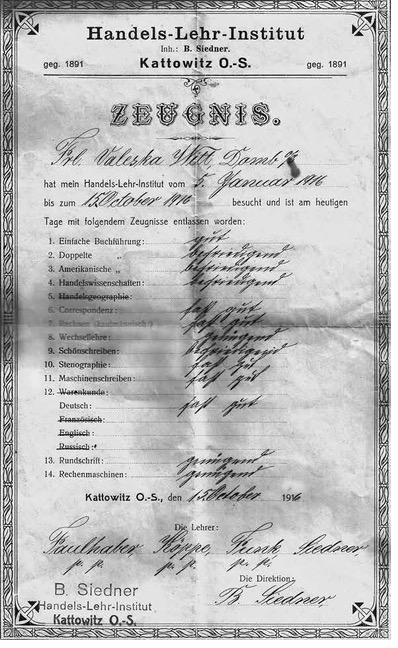 Handels-Lehr-Institut
Inh.: B. Siedner.
geg. 1891 Kattowitz O.-S. geg. 1891
ZEUGNIS.
Frl. Valeska Witt Domb
hat mein Handels-Lehr-Institut vom 5. Januar 1916
bis zum 15 October 1916 besucht und ist am heutigen
Tage mit folgendem Zeugnisse entlassen worden:
1. Einfache Buchführung: gut
2. Doppelte „ befriedigend
3. Amerikanische „ befriedigend
4. Handelswissenschaften: befriedigend
5. Handelsgeographie:
6. Correspondenz: fast gut
7. Rechnen (kaufmännisch): fast gut
8. Wechsellehre: genügend
9. Schönschreiben: befriedigend
10. Stenographie: fast gut
11. Maschinenschreiben: fast gut
12. Warenkunde:
Deutsch: fast gut
Französisch:
Englisch:
Russisch:
13. Rundschrift: genügend
14. Rechenmaschinen: genügend
Kattowitz O.-S., den 15 October 1916
Die Lehrer:
Faulhaber Köppe, Funk Siedner
p. p. p. p. p. p.
Die Direktion:
B. Siedner
B. Siedner
Handels-Lehr-Institut
Kattowitz O.-S.